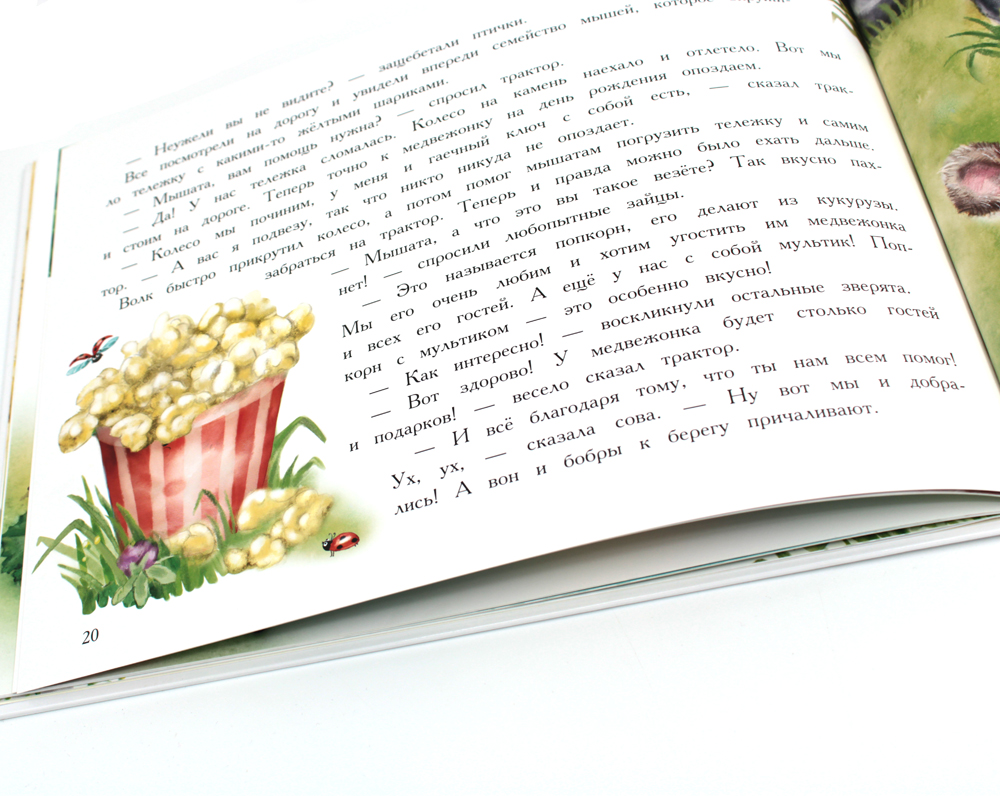 — Неужели вы не видите? — защебетали птички.
Все посмотрели на дорогу и увидели впереди семейство мышей, которое
ло тележку с какими-то жёлтыми шариками.
— Мышата, вам помощь нужна? — спросил трактор.
— Да! У нас тележка сломалась. Колесо на камень наехало и отлетело. Вот мы
и стоим на дороге. Теперь точно к медвежонку на день рождения опоздаем.
— Колесо мы починим, у меня и гаечный ключ с собой есть, — сказал трак-
тор. — А вас я подвезу, так что никто никуда не опоздает.
Волк быстро прикрутил колесо, а потом помог мышатам погрузить тележку и самим
забраться на трактор. Теперь и правда можно было ехать дальше.
— Мышата, а что это вы такое везёте? Так вкусно пах-
нет! — спросили любопытные зайцы.
— Это называется попкорн, его делают из кукурузы.
Мы его очень любим и хотим угостить им медвежонка
и всех его гостей. А ещё у нас с собой мультик! Поп-
корн с мультиком — это особенно вкусно!
— Как интересно! — воскликнули остальные зверята.
— Вот здорово! У медвежонка будет столько гостей
и подарков! — весело сказал трактор.
— И всё благодаря тому, что ты нам всем помог!
Ух, ух, — сказала сова. — Ну вот мы и добра-
лись! А вон и бобры к берегу причаливают.
20